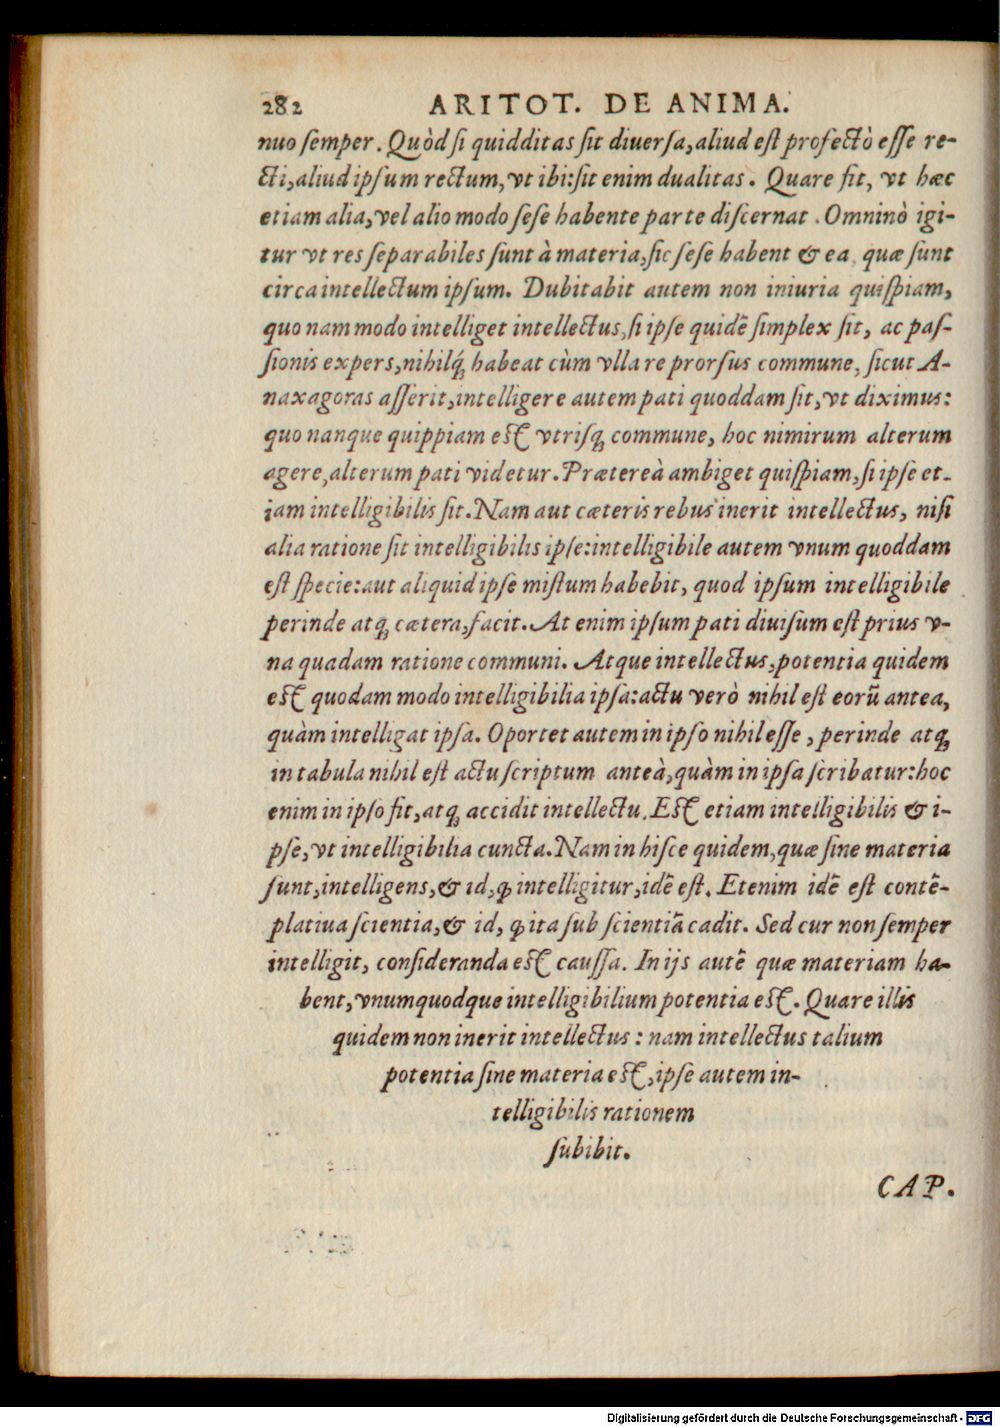 282 ARITOT. DE ANIMA.
nuo semper. Quòd si quidditas sit diuersa, aliud est profectò esse re-
cti, aliud ipsum rectum, vt ibi: sit enim dualitas. Quare fit, vt hæc
etiam alia, vel alio modo sese habente parte discernat. Omninò igi-
tur vt res separabiles sunt à materia, sic sese habent & ea quæ sunt
circa intellectum ipsum. Dubitabit autem non iniuria quispiam,
quo nam modo intelliget intellectus, si ipse quidē simplex sit, ac pas-
sionis expers, nihilq́; habeat cùm vlla re prorsus commune, sicut A-
naxagoras asserit, intelligere autem pati quoddam sit, vt diximus:
quo nanque quippiam est vtrisq; commune, hoc nimirum alterum
agere, alterum pati videtur. Prætereà ambiget quispiam, si ipse et-
iam intelligibilis sit. Nam aut cæteris rebus inerit intellectus, nisi
alia ratione sit intelligibilis ipse: intelligibile autem vnum quoddam
est specie: aut aliquid ipse mistum habebit, quod ipsum intelligibile
perinde atq; cætera, facit. At enim ipsum pati diuisum est prius v-
na quadam ratione communi. Atque intellectus, potentia quidem
est quodam modo intelligibilia ipsa: actu verò nihil est eorū antea,
quàm intelligat ipsa. Oportet autem in ipso nihil esse, perinde atq;
in tabula nihil est actu scriptum anteà, quàm in ipsa scribatur: hoc
enim in ipso fit, atq; accidit intellectu. Est etiam intelligibilis & i-
pse, vt intelligibilia cuncta. Nam in hisce quidem, quæ sine materia
sunt, intelligens, & id, ꝙ intelligitur, idē est. Etenim idē est contē-
platiua scientia, & id, ꝙ ita sub scientiā cadit. Sed cur non semper
intelligit, consideranda est caussa. In ijs autē quæ materiam ha-
bent, vnumquodque intelligibilium potentia est. Quare illis
quidem non inerit intellectus: nam intellectus talium
potentia sine materia est, ipse autem in-
telligibilis rationem
subibit.
CAP.
Digitalisierung gefördert durch die Deutsche Forschungsgemeinschaft - DFG